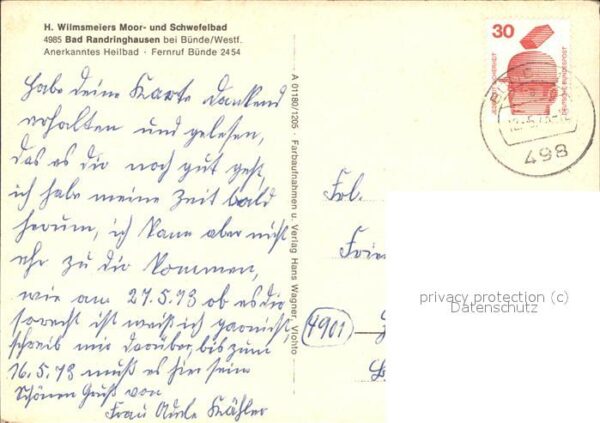 H. Wilmsmeiers Moor- und Schwefelbad
4985 Bad Randringhausen bei Bünde/Westf.
Anerkanntes Heilbad · Fernruf Bünde 2454
habe deine Karte dankend
erhalten und gelesen,
das es dir noch gut geht,
ich habe meine Zeit bald
herum, ich kann aber nicht
ehr zu dir kommen,
wie am 27.5.73 ob es dir
so recht ist weiß ich garnicht
schreib mir darüber, bis zum
16.5.73 muß es hier sein
Schönen Gruß von
Frau Kähler
A 01180/1205 · Farbaufnahmen u. Verlag Hans Wagner, Vlotho
30
DEUTSCHE BUNDESPOST
498
Frl.
(4901)
privacy protection (c)
Datenschutz